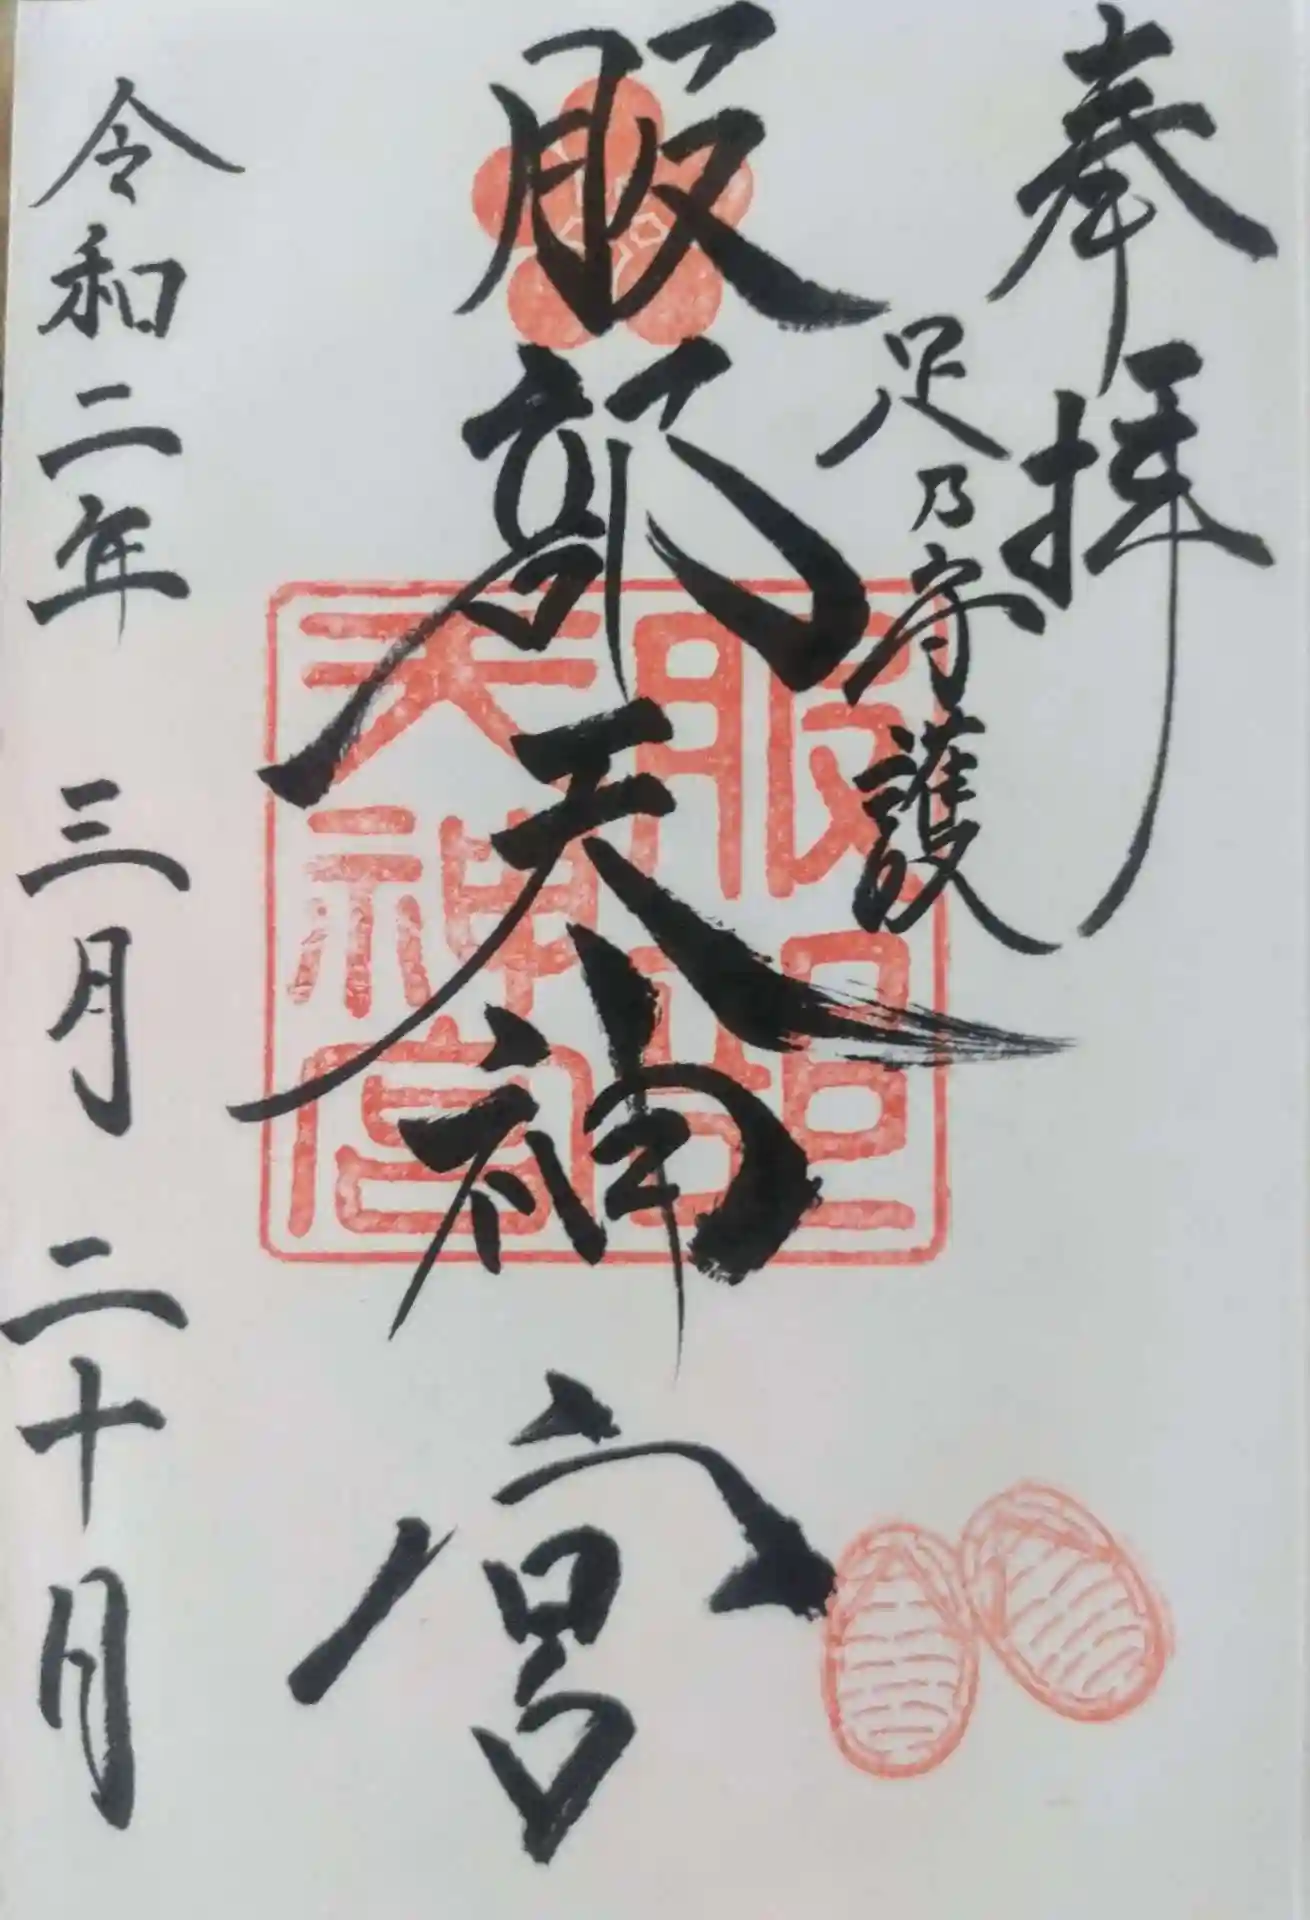 奉拝
足乃守護
服部天神宮
服部
天神宮
令和二年 三月 二十日